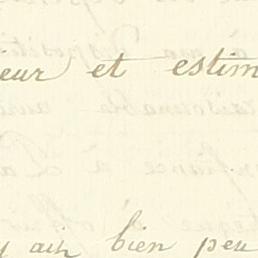 eur et estim
y ait bien peu